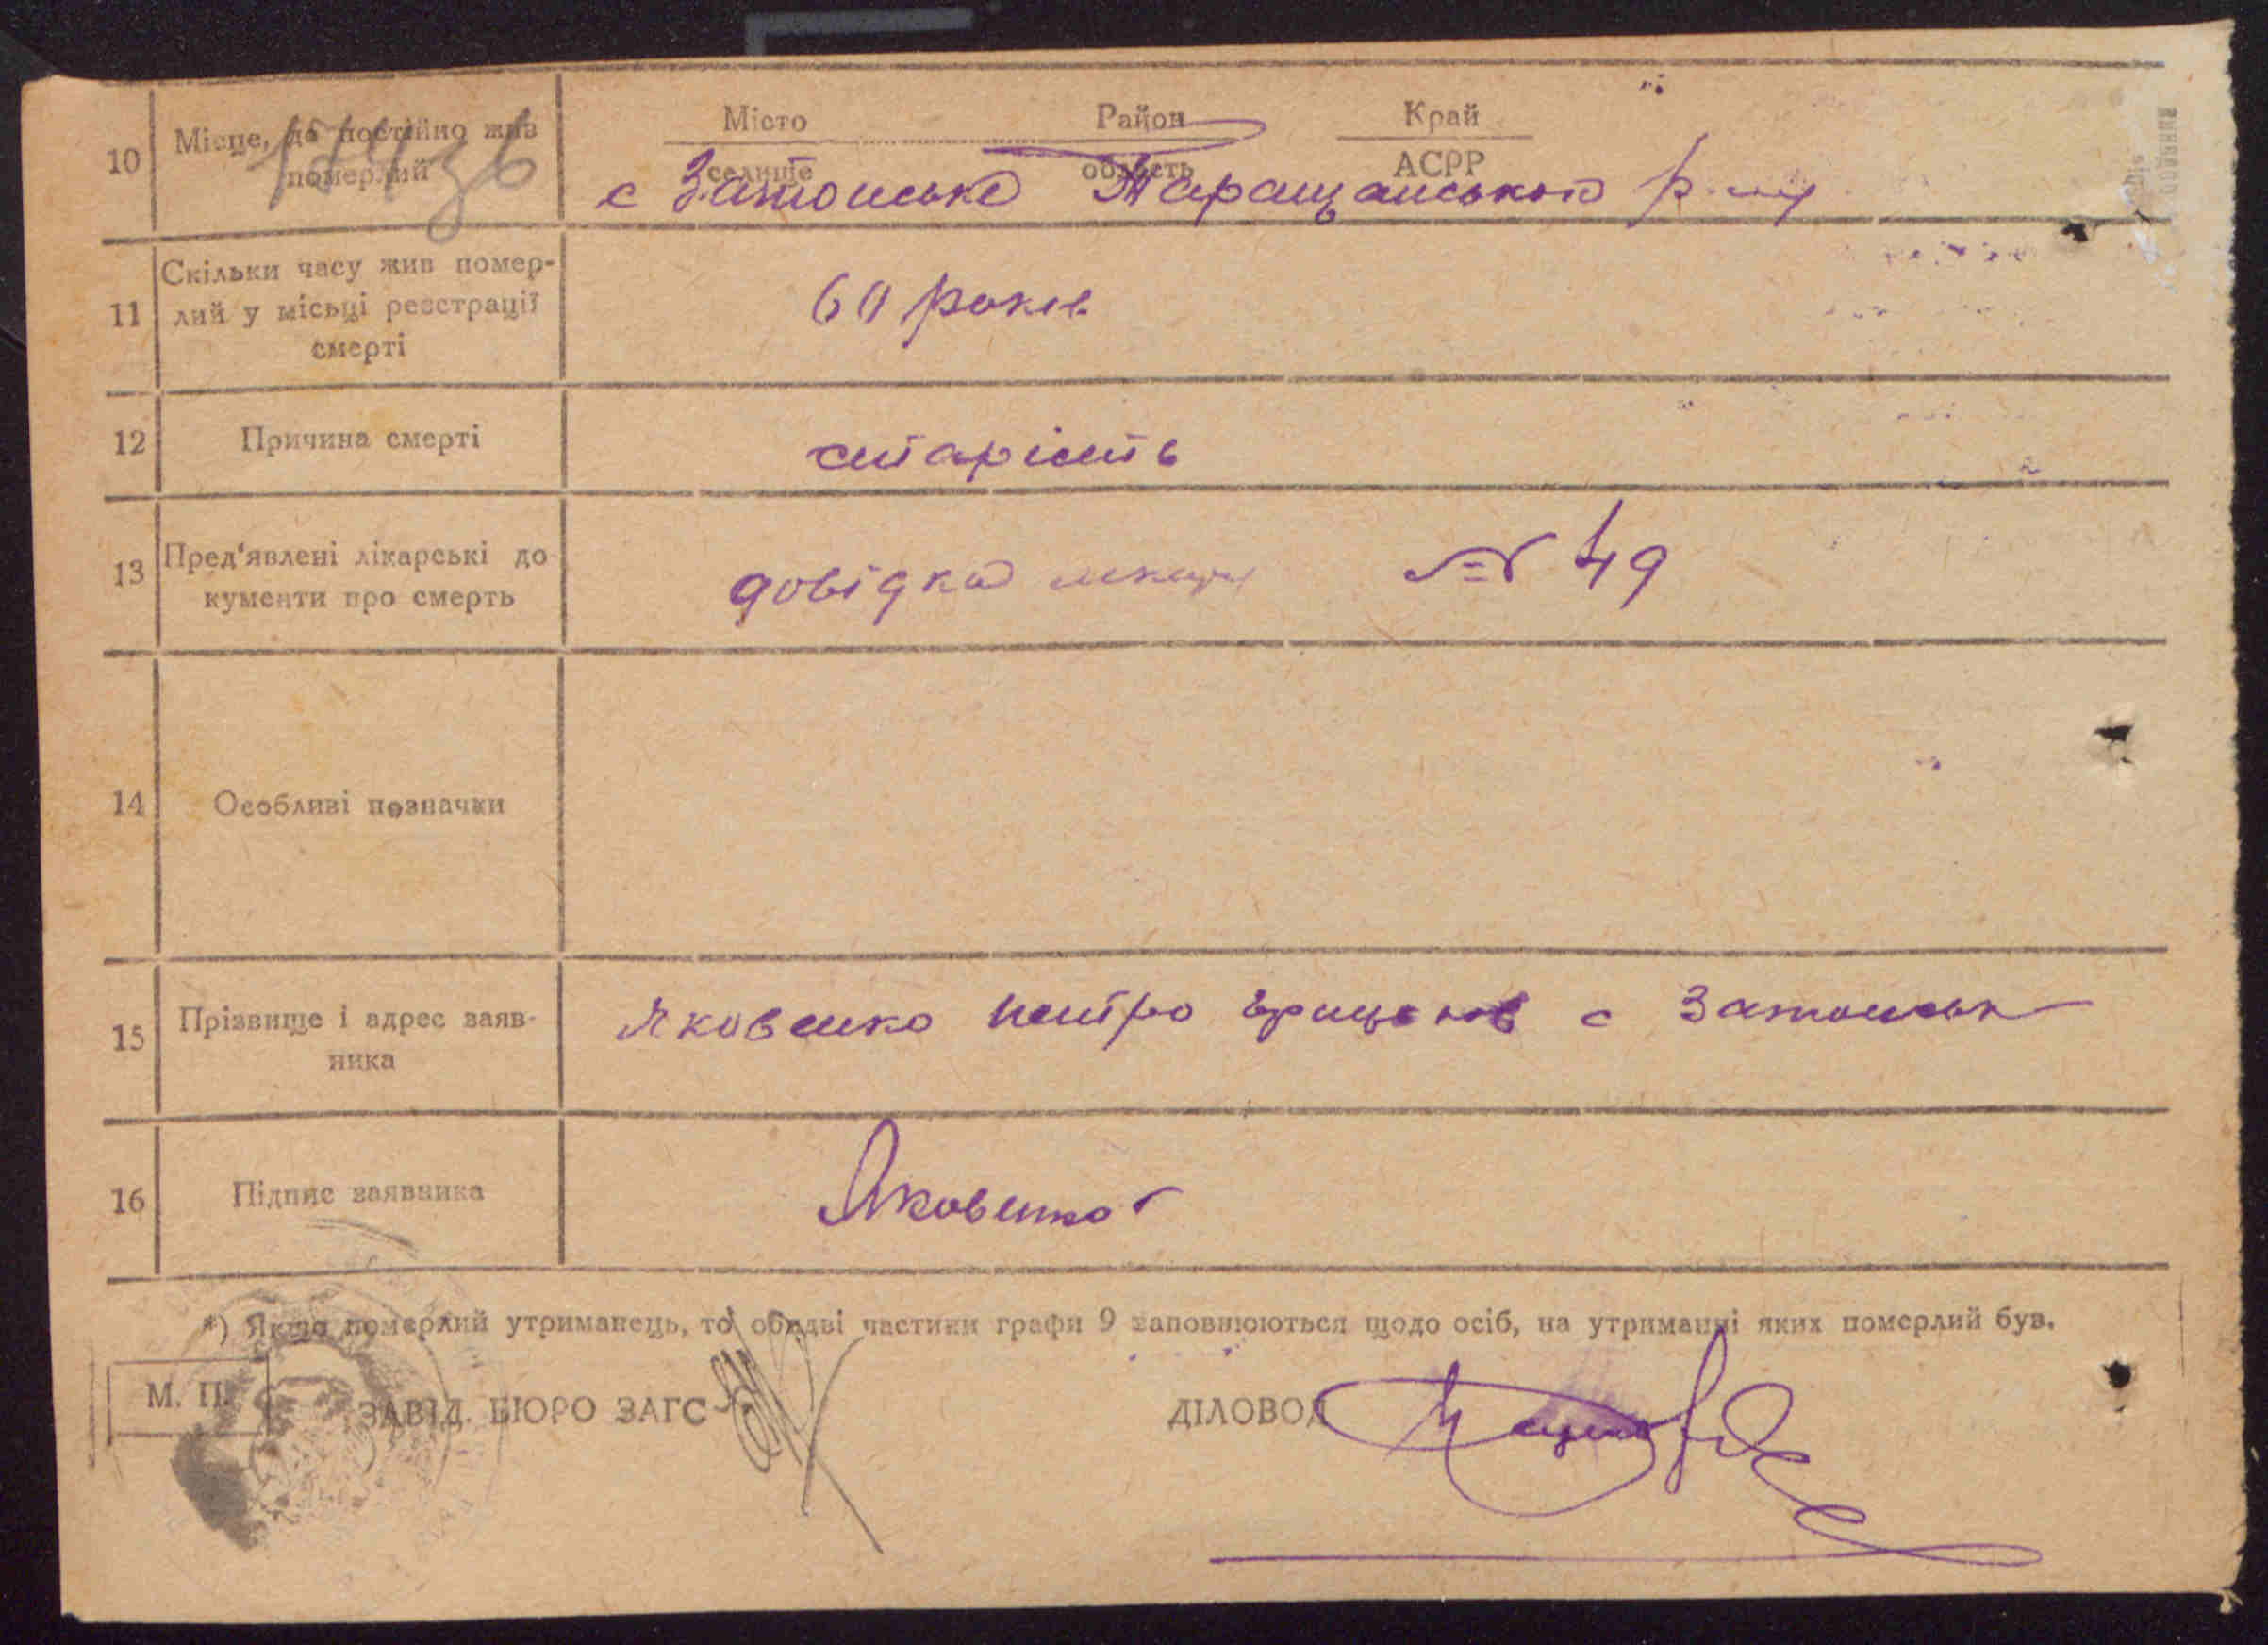 10 Місце, де постійно жив
померлий
Місто Район Край
селище область АСРР
с Затонське Таращанського р-ну
11 Скільки часу жив помер-
лий у місьці реєстрації
смерті
60 років
12 Причина смерті
старість
13 Пред'явлені лікарські до
кументи про смерть
довідка № 49
14 Особливі позначки
15 Прізвище і адрес заяв-
ника
Яковенко Петро с Затонськ
16 Підпис заявника
Яковенко
*) Якщо померлий утриманець, то обидві частини графи 9 заповнюються щодо осіб, на утриманні яких померлий був.
М. П. ЗАВІД. БЮРО ЗАГС ДІЛОВОД